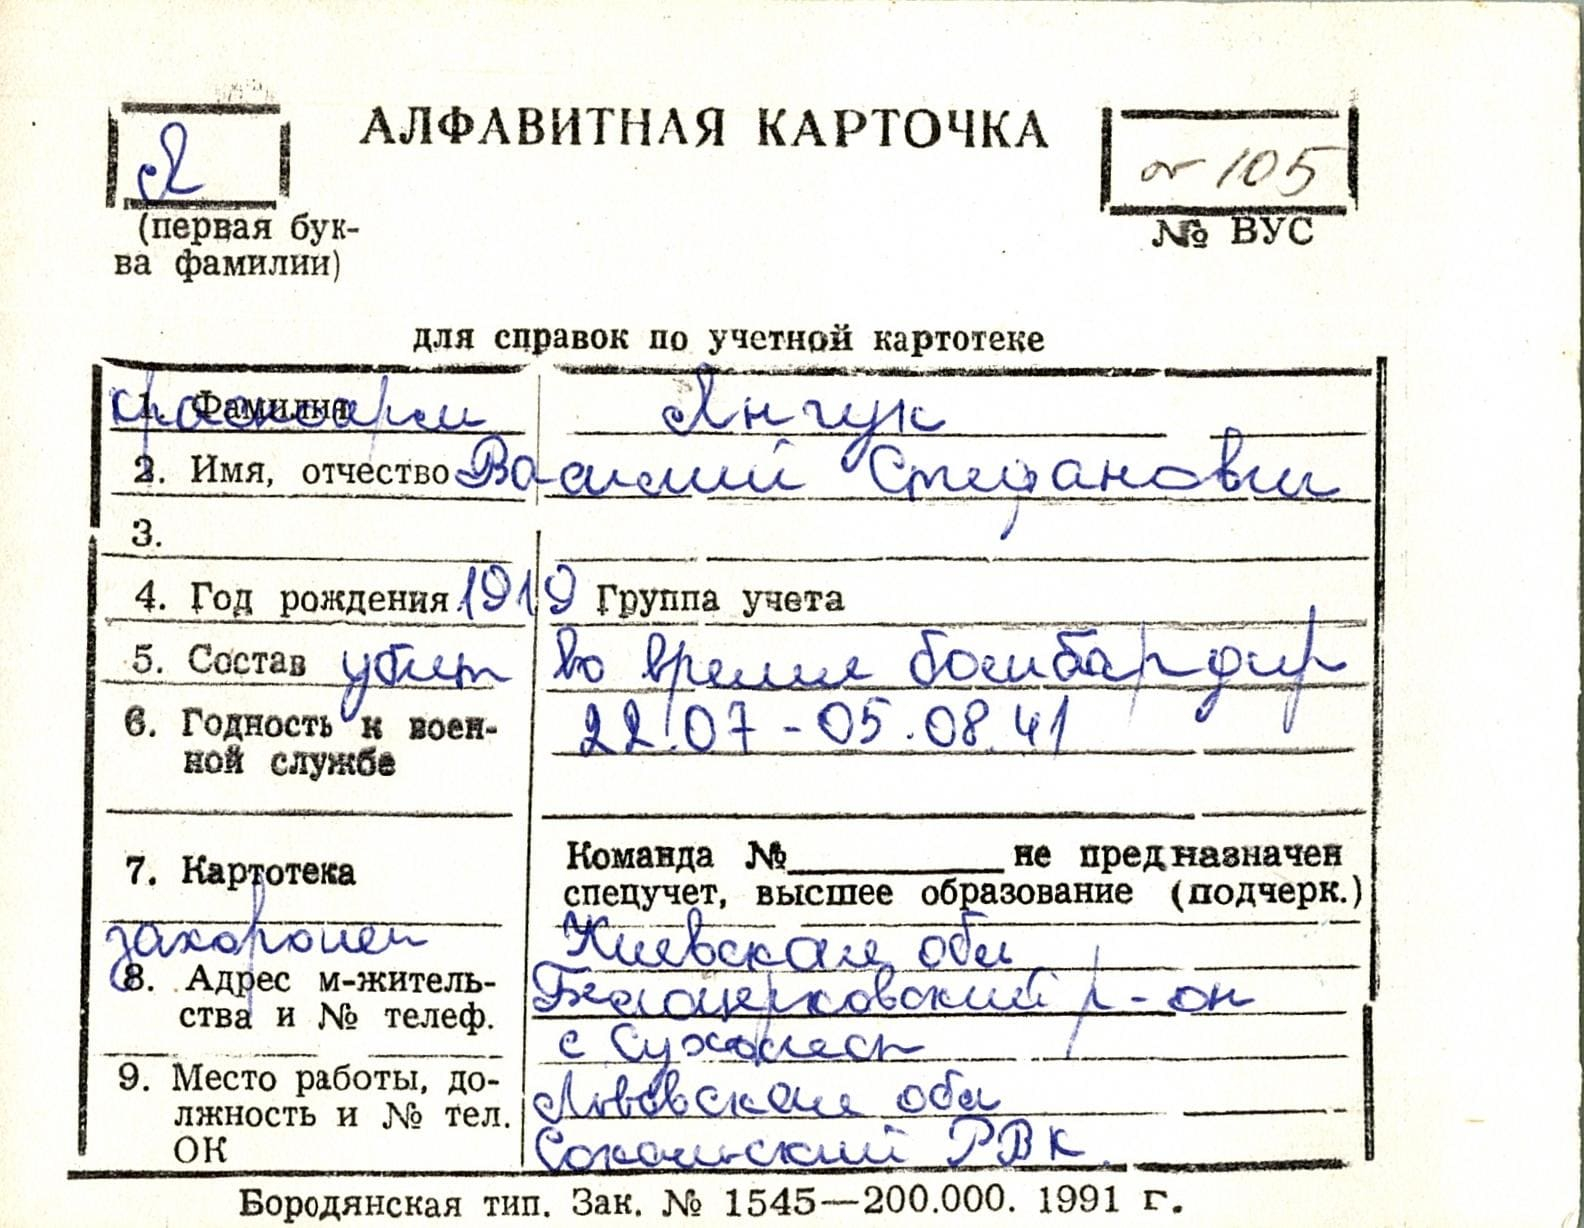 Я
АЛФАВИТНАЯ КАРТОЧКА
105
(первая бук-
ва фамилии)
№ ВУС
для справок по учетной картотеке
1. Фамилия Янчук
2. Имя, отчество Василий Степанович
3.
4. Год рождения 1919 Группа учета
5. Состав убит во время бомбардир
6. Годность к воен-
ной службе
22.07-05.08.41
7. Картотека
Команда № не предназначен
спецучет, высшее образование (подчерк.)
захоронен Киевская обл
8. Адрес м-житель-
ства и № телеф.
Белоцерковский р-он
с Сухолесы
9. Место работы, до-
лжность и № тел.
ОК
Львовская обл
Сокальский РВК
Бородянская тип. Зак. № 1545—200.000. 1991 г.